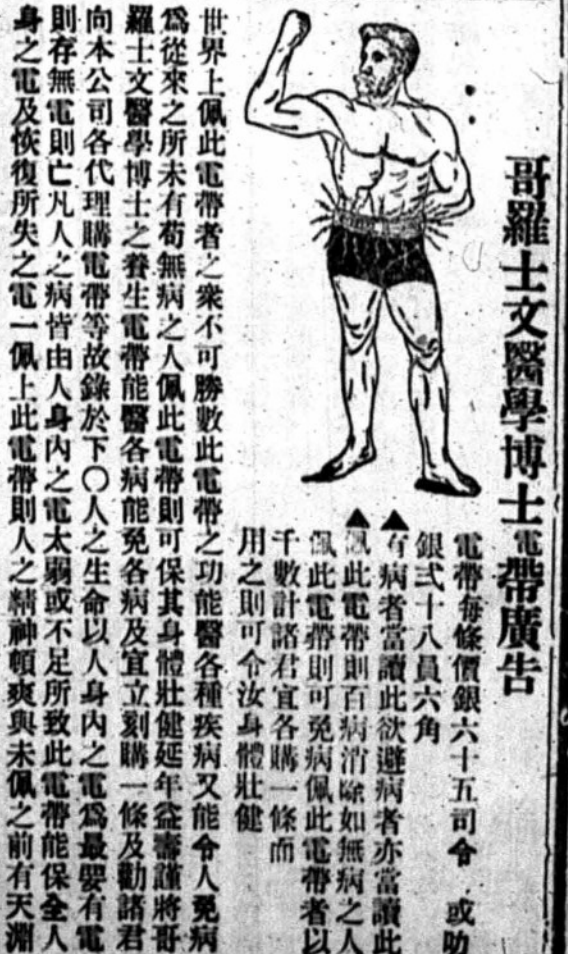 哥羅士文醫學博士電帶廣告
電帶每條價銀六十五司令 或叻
銀弍十八員六角
▲有病者當讀此欲避病者亦當讀此
▲佩此電帶則百病消除如無病之人
佩此電帶則可免病佩此電帶者以
千數計諸君宜各購一條而
用之則可令汝身體壯健
世界上佩此電帶者之衆不可勝數此電帶之功能醫各種疾病又能令人免病
爲從來之所未有苟無病之人佩此電帶則可保其身體壯健延年益壽謹將哥
羅士文醫學博士之養生電帶能醫各病能免各病及宜立刻購一條及勸諸君
向本公司各代理購電帶等故錄於下〇人之生命以人身內之電爲最要有電
則存無電則亡凡人之病皆由人身內之電太弱或不足所致此電帶能保全人
身之電及恢復所失之電一佩上此電帶則人之精神頓爽與未佩之前有天淵